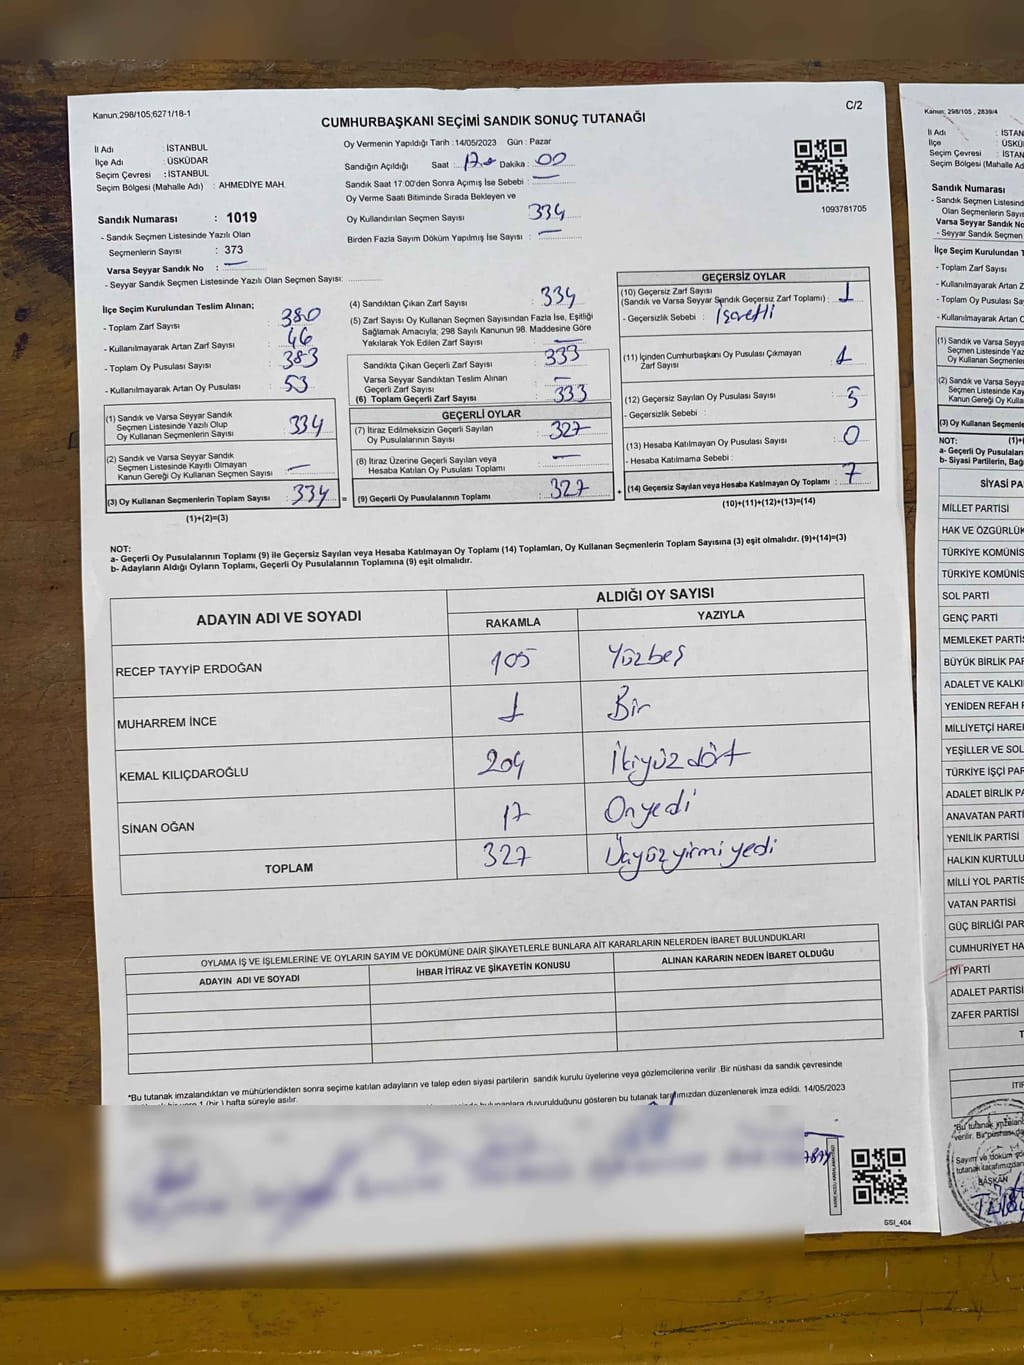 Kanun;298/105;6271/18-1
C/2
CUMHURBAŞKANI SEÇİMİ SANDIK SONUÇ TUTANAĞI
İl Adı : İSTANBUL
İlçe Adı : ÜSKÜDAR
Seçim Çevresi : İSTANBUL
Seçim Bölgesi (Mahalle Adı) : AHMEDİYE MAH.
Sandık Numarası : 1019
- Sandık Seçmen Listesinde Yazılı Olan
Seçmenlerin Sayısı : 373
Varsa Seyyar Sandık No : —
- Seyyar Sandık Seçmen Listesinde Yazılı Olan Seçmen Sayısı:
Oy Vermenin Yapıldığı Tarih : 14/05/2023 Gün : Pazar
Sandığın Açıldığı Saat : 17.00 Dakika : 00
Sandık Saat 17:00'den Sonra Açımış İse Sebebi : —
Oy Verme Saati Bitiminde Sırada Bekleyen ve
Oy Kullandırılan Seçmen Sayısı 334
Birden Fazla Sayım Döküm Yapılmış İse Sayısı : —
1093781705
İlçe Seçim Kurulundan Teslim Alınan;
- Toplam Zarf Sayısı : 380
- Kullanılmayarak Artan Zarf Sayısı : 46
- Toplam Oy Pusulası Sayısı : 383
- Kullanılmayarak Artan Oy Pusulası : 53
(1) Sandık ve Varsa Seyyar Sandık
Seçmen Listesinde Yazılı Olup
Oy Kullanan Seçmenlerin Sayısı : 334
(2) Sandık ve Varsa Seyyar Sandık
Seçmen Listesinde Kayıtlı Olmayan
Kanun Gereği Oy Kullanan Seçmen Sayısı : —
(3) Oy Kullanan Seçmenlerin Toplam Sayısı : 334 =
(1)+(2)=(3)
(4) Sandıktan Çıkan Zarf Sayısı : 334
(5) Zarf Sayısı Oy Kullanan Seçmen Sayısından Fazla İse, Eşitliği
Sağlamak Amacıyla; 298 Sayılı Kanunun 98. Maddesine Göre
Yakılarak Yok Edilen Zarf Sayısı : —
Sandıkta Çıkan Geçerli Zarf Sayısı : 333
Varsa Seyyar Sandıktan Teslim Alınan
Geçerli Zarf Sayısı : —
(6) Toplam Geçerli Zarf Sayısı : 333
GEÇERLİ OYLAR
(7) İtiraz Edilmeksizin Geçerli Sayılan
Oy Pusulalarının Sayısı : 327
(8) İtiraz Üzerine Geçerli Sayılan veya
Hesaba Katılan Oy Pusulası Toplamı : —
(9) Geçerli Oy Pusulalarının Toplamı : 327 +
GEÇERSİZ OYLAR
(10) Geçersiz Zarf Sayısı
(Sandık ve Varsa Seyyar Sandık Geçersiz Zarf Toplamı) : 1
- Geçersizlik Sebebi : İşaretli
(11) İçinden Cumhurbaşkanı Oy Pusulası Çıkmayan
Zarf Sayısı : 1
(12) Geçersiz Sayılan Oy Pusulası Sayısı : 5
- Geçersizlik Sebebi :
(13) Hesaba Katılmayan Oy Pusulası Sayısı : 0
- Hesaba Katılmama Sebebi :
(14) Geçersiz Sayılan veya Hesaba Katılmayan Oy Toplamı : 7
(10)+(11)+(12)+(13)=(14)
NOT:
a- Geçerli Oy Pusulalarının Toplamı (9) ile Geçersiz Sayılan veya Hesaba Katılmayan Oy Toplamı (14) Toplamları, Oy Kullanan Seçmenlerin Toplam Sayısına (3) eşit olmalıdır. (9)+(14)=(3)
b- Adayların Aldığı Oyların Toplamı, Geçerli Oy Pusulalarının Toplamına (9) eşit olmalıdır.
ADAYIN ADI VE SOYADI
ALDIĞI OY SAYISI
RAKAMLA YAZIYLA
RECEP TAYYİP ERDOĞAN 105 Yüzbeş
MUHARREM İNCE 1 Bir
KEMAL KILIÇDAROĞLU 204 İkiyüzdört
SİNAN OĞAN 17 Onyedi
TOPLAM 327 Üçyüzyirmiyedi
OYLAMA İŞ VE İŞLEMLERİNE VE OYLARIN SAYIM VE DÖKÜMÜNE DAİR ŞİKAYETLERLE BUNLARA AİT KARARLARIN NELERDEN İBARET BULUNDUKLARI
ADAYIN ADI VE SOYADI İHBAR İTİRAZ VE ŞİKAYETİN KONUSU ALINAN KARARIN NEDEN İBARET OLDUĞU
*Bu tutanak imzalandıktan ve mühürlendikten sonra seçime katılan adayların ve talep eden siyasi partilerin sandık kurulu üyelerine veya gözlemcilerine verilir. Bir nüshası da sandık çevresinde
1 (bir) hafta süreyle asılır. duyurulduğunu gösteren bu tutanak tarafımızdan düzenlenerek imza edildi. 14/05/2023
SSI_404
Kanun; 298/105 , 2839/4
İl Adı : İSTAN
İlçe : ÜSKÜ
Seçim Çevresi : İSTAN
Seçim Bölgesi (Mahalle Ad
Sandık Numarası
- Sandık Seçmen Listesind
Olan Seçmenlerin Sayısı
Varsa Seyyar Sandık No
- Seyyar Sandık Seçmen
İlçe Seçim Kurulundan T
- Toplam Zarf Sayısı
- Kullanılmayarak Artan
- Toplam Oy Pusulası Sa
- Kullanılmayarak Artan O
(1) Sandık ve Varsa Seyya
Seçmen Listesinde Yaz
Oy Kullanan Seçmenle
(2) Sandık ve Varsa Seyya
Seçmen Listesinde Kay
Kanun Gereği Oy Kulla
(3) Oy Kullanan Seçmenle
NOT: (1)+(
a- Geçerli Oy Pusulaları
b- Siyasi Partilerin, Bağ
SİYASİ PA
MİLLET PARTİSİ
HAK VE ÖZGÜRLÜK
TÜRKİYE KOMÜNİS
TÜRKİYE KOMÜNİS
SOL PARTİ
GENÇ PARTİ
MEMLEKET PARTİS
BÜYÜK BİRLİK PAR
ADALET VE KALKI
YENİDEN REFAH P
MİLLİYETÇİ HAREK
YEŞİLLER VE SOL
TÜRKİYE İŞÇİ PAR
ADALET BİRLİK PA
ANAVATAN PARTİ
YENİLİK PARTİSİ
HALKIN KURTULU
MİLLİ YOL PARTİS
VATAN PARTİSİ
GÜÇ BİRLİĞİ PAR
CUMHURİYET HA
İYİ PARTİ
ADALET PARTİSİ
ZAFER PARTİSİ
T
İTİR
*Bu tutanak imzalan
verilir. Bir nüshası da
Sayım ve döküm
tutanak tarafımızdan
BAŞKAN